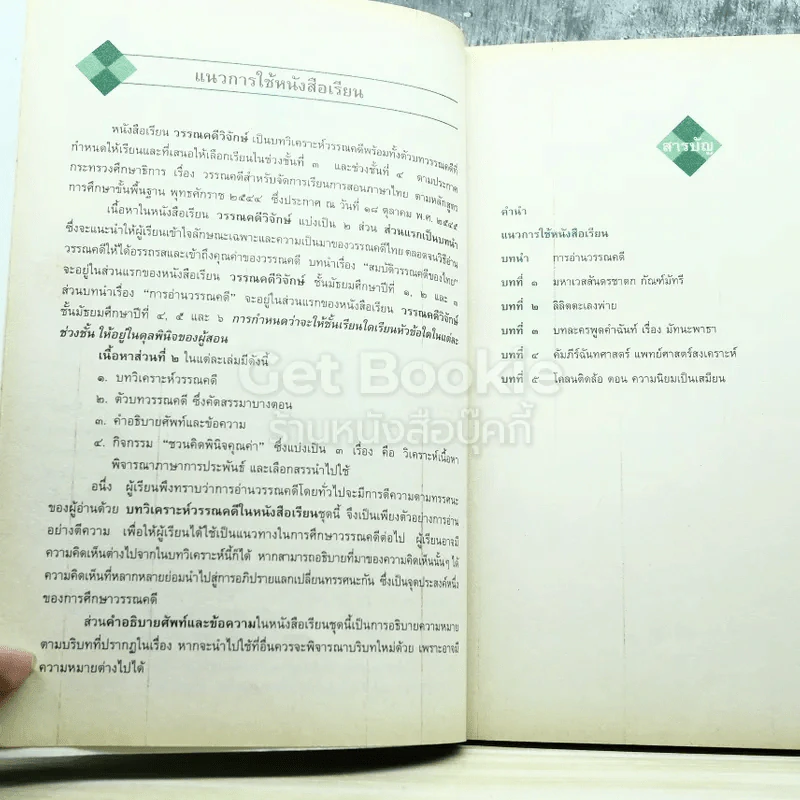 แนวการใช้หนังสือเรียน
หนังสือเรียน วรรณคดีวิจักษ์ เป็นบทวิเคราะห์วรรณคดีพร้อมทั้งตัวบทวรรณคดีที่
กำหนดให้เรียนและที่เสนอให้เลือกเรียนในช่วงชั้นที่ ๓ และช่วงชั้นที่ ๔ ตามประกาศ
กระทรวงศึกษาธิการ เรื่อง วรรณคดีสำหรับจัดการเรียนการสอนภาษาไทย ตามหลักสูตร
การศึกษาขั้นพื้นฐาน พุทธศักราช ๒๕๔๔ ซึ่งประกาศ ณ วันที่ ๑๘ ตุลาคม พ.ศ. ๒๕๔๕
เนื้อหาในหนังสือเรียน วรรณคดีวิจักษ์ แบ่งเป็น ๒ ส่วน ส่วนแรกเป็นบทนำ
ซึ่งจะแนะนำให้ผู้เรียนเข้าใจลักษณะเฉพาะและความเป็นมาของวรรณคดีไทย ตลอดจนวิธีอ่าน
วรรณคดีให้ได้อรรถรสและเข้าถึงคุณค่าของวรรณคดี บทนำเรื่อง “สมบัติวรรณคดีของไทย”
จะอยู่ในส่วนแรกของหนังสือเรียน วรรณคดีวิจักษ์ ชั้นมัธยมศึกษาปีที่ ๑, ๒ และ ๓
ส่วนบทนำเรื่อง “การอ่านวรรณคดี” จะอยู่ในส่วนแรกของหนังสือเรียน วรรณคดีวิจักษ์
ชั้นมัธยมศึกษาปีที่ ๔, ๕ และ ๖ การกำหนดว่าจะให้ชั้นเรียนใดเรียนหัวข้อใดในแต่ละ
ช่วงชั้น ให้อยู่ในดุลพินิจของผู้สอน
เนื้อหาส่วนที่ ๒ ในแต่ละเล่มมีดังนี้
๑. บทวิเคราะห์วรรณคดี
๒. ตัวบทวรรณคดี ซึ่งคัดสรรมาบางตอน
๓. คำอธิบายศัพท์และข้อความ
๔. กิจกรรม “ชวนคิดพินิจคุณค่า” ซึ่งแบ่งเป็น ๓ เรื่อง คือ วิเคราะห์เนื้อหา
พิจารณาภาษาการประพันธ์ และเลือกสรรนำไปใช้
อนึ่ง ผู้เรียนพึงทราบว่าการอ่านวรรณคดีโดยทั่วไปจะมีการตีความตามทรรศนะ
ของผู้อ่านด้วย บทวิเคราะห์วรรณคดีในหนังสือเรียนชุดนี้ จึงเป็นเพียงตัวอย่างการอ่าน
อย่างตีความ เพื่อให้ผู้เรียนได้ใช้เป็นแนวทางในการศึกษาวรรณคดีต่อไป ผู้เรียนอาจมี
ความคิดเห็นต่างไปจากในบทวิเคราะห์นี้ก็ได้ หากสามารถอธิบายที่มาของความคิดเห็นนั้นๆ ได้
ความคิดเห็นที่หลากหลายย่อมนำไปสู่การอภิปรายแลกเปลี่ยนทรรศนะกัน ซึ่งเป็นจุดประสงค์หนึ่ง
ของการศึกษาวรรณคดี
ส่วนคำอธิบายศัพท์และข้อความในหนังสือเรียนชุดนี้เป็นการอธิบายความหมาย
ตามบริบทที่ปรากฏในเรื่อง หากจะนำไปใช้ที่อื่นควรจะพิจารณาบริบทใหม่ด้วย เพราะอาจมี
ความหมายต่างไปได้
สารบัญ
คำนำ
แนวการใช้หนังสือเรียน
บทนำ การอ่านวรรณคดี
บทที่ ๑ มหาเวสสันดรชาดก กัณฑ์มัทรี
บทที่ ๒ ลิลิตตะเลงพ่าย
บทที่ ๓ บทละครพูดคำฉันท์ เรื่อง มัทนะพาธา
บทที่ ๔ คัมภีร์ฉันทศาสตร์ แพทย์ศาสตร์สงเคราะห์
บทที่ ๕ โคลนติดล้อ ตอน ความนิยมเป็นเสมียน
Get Bookie
ร้านหนังสือบุ๊คกี้